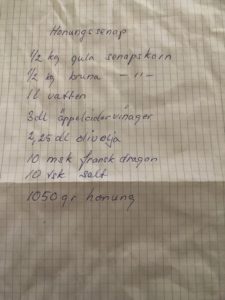 Honungssenap
1/2 kg gula senapskorn
1/2 kg bruna - " -
1 l vatten
3 dl äppelcidervinäger
2,25 dl olivolja
10 msk fransk dragon
10 tsk salt
1050 gr honung